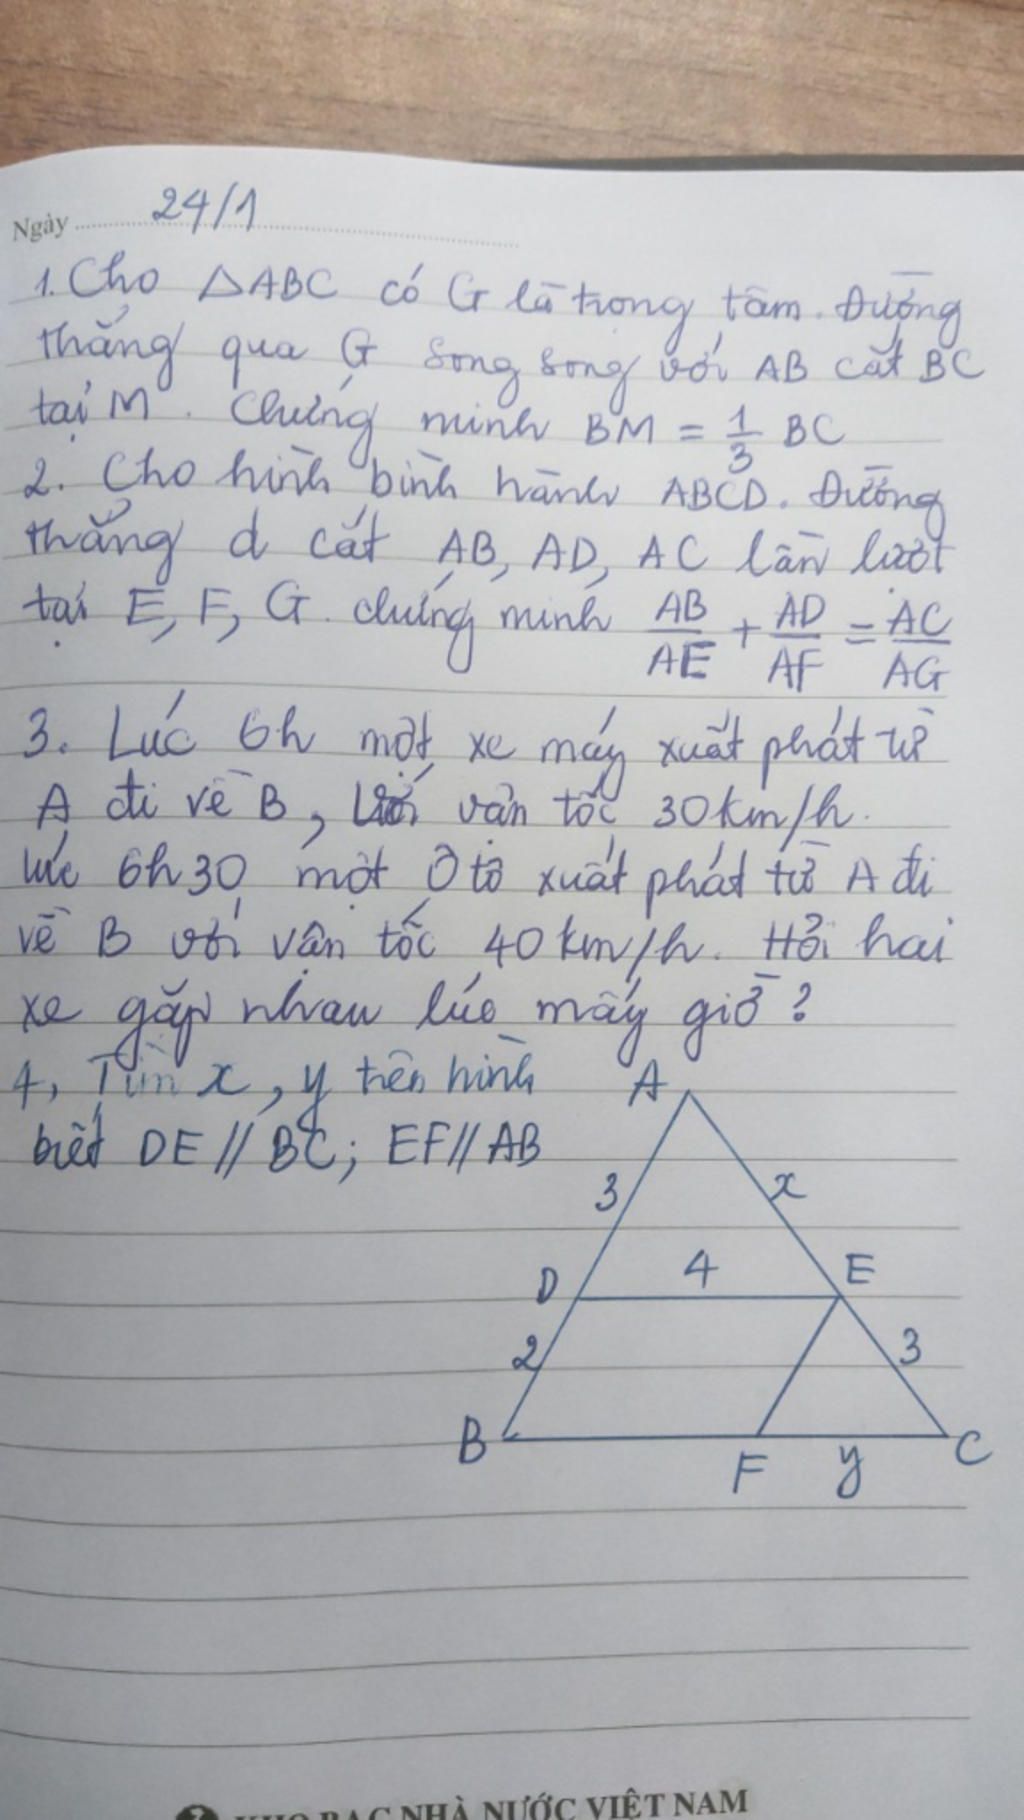 Ngày 24/1
1. Cho △ABC có G là trọng tâm. Đường
thẳng qua G song song với AB cắt BC
tại M. Chứng minh BM = 1/3 BC
2. Cho hình bình hành ABCD. Đường
thẳng d cắt AB, AD, AC lần lượt
tại E, F, G. chứng minh AB/AE + AD/AF = AC/AG
3. Lúc 6h một xe máy xuất phát từ
A đi về B, với vận tốc 30km/h.
lúc 6h30 một Ô tô xuất phát từ A đi
về B với vận tốc 40km/h. Hỏi hai
xe gặp nhau lúc mấy giờ?
4, Tìm x, y trên hình
biết DE // BC; EF // AB
A
3 x
D 4 E
2 3
B F y C
KHO BẠC NHÀ NƯỚC VIỆT NAM